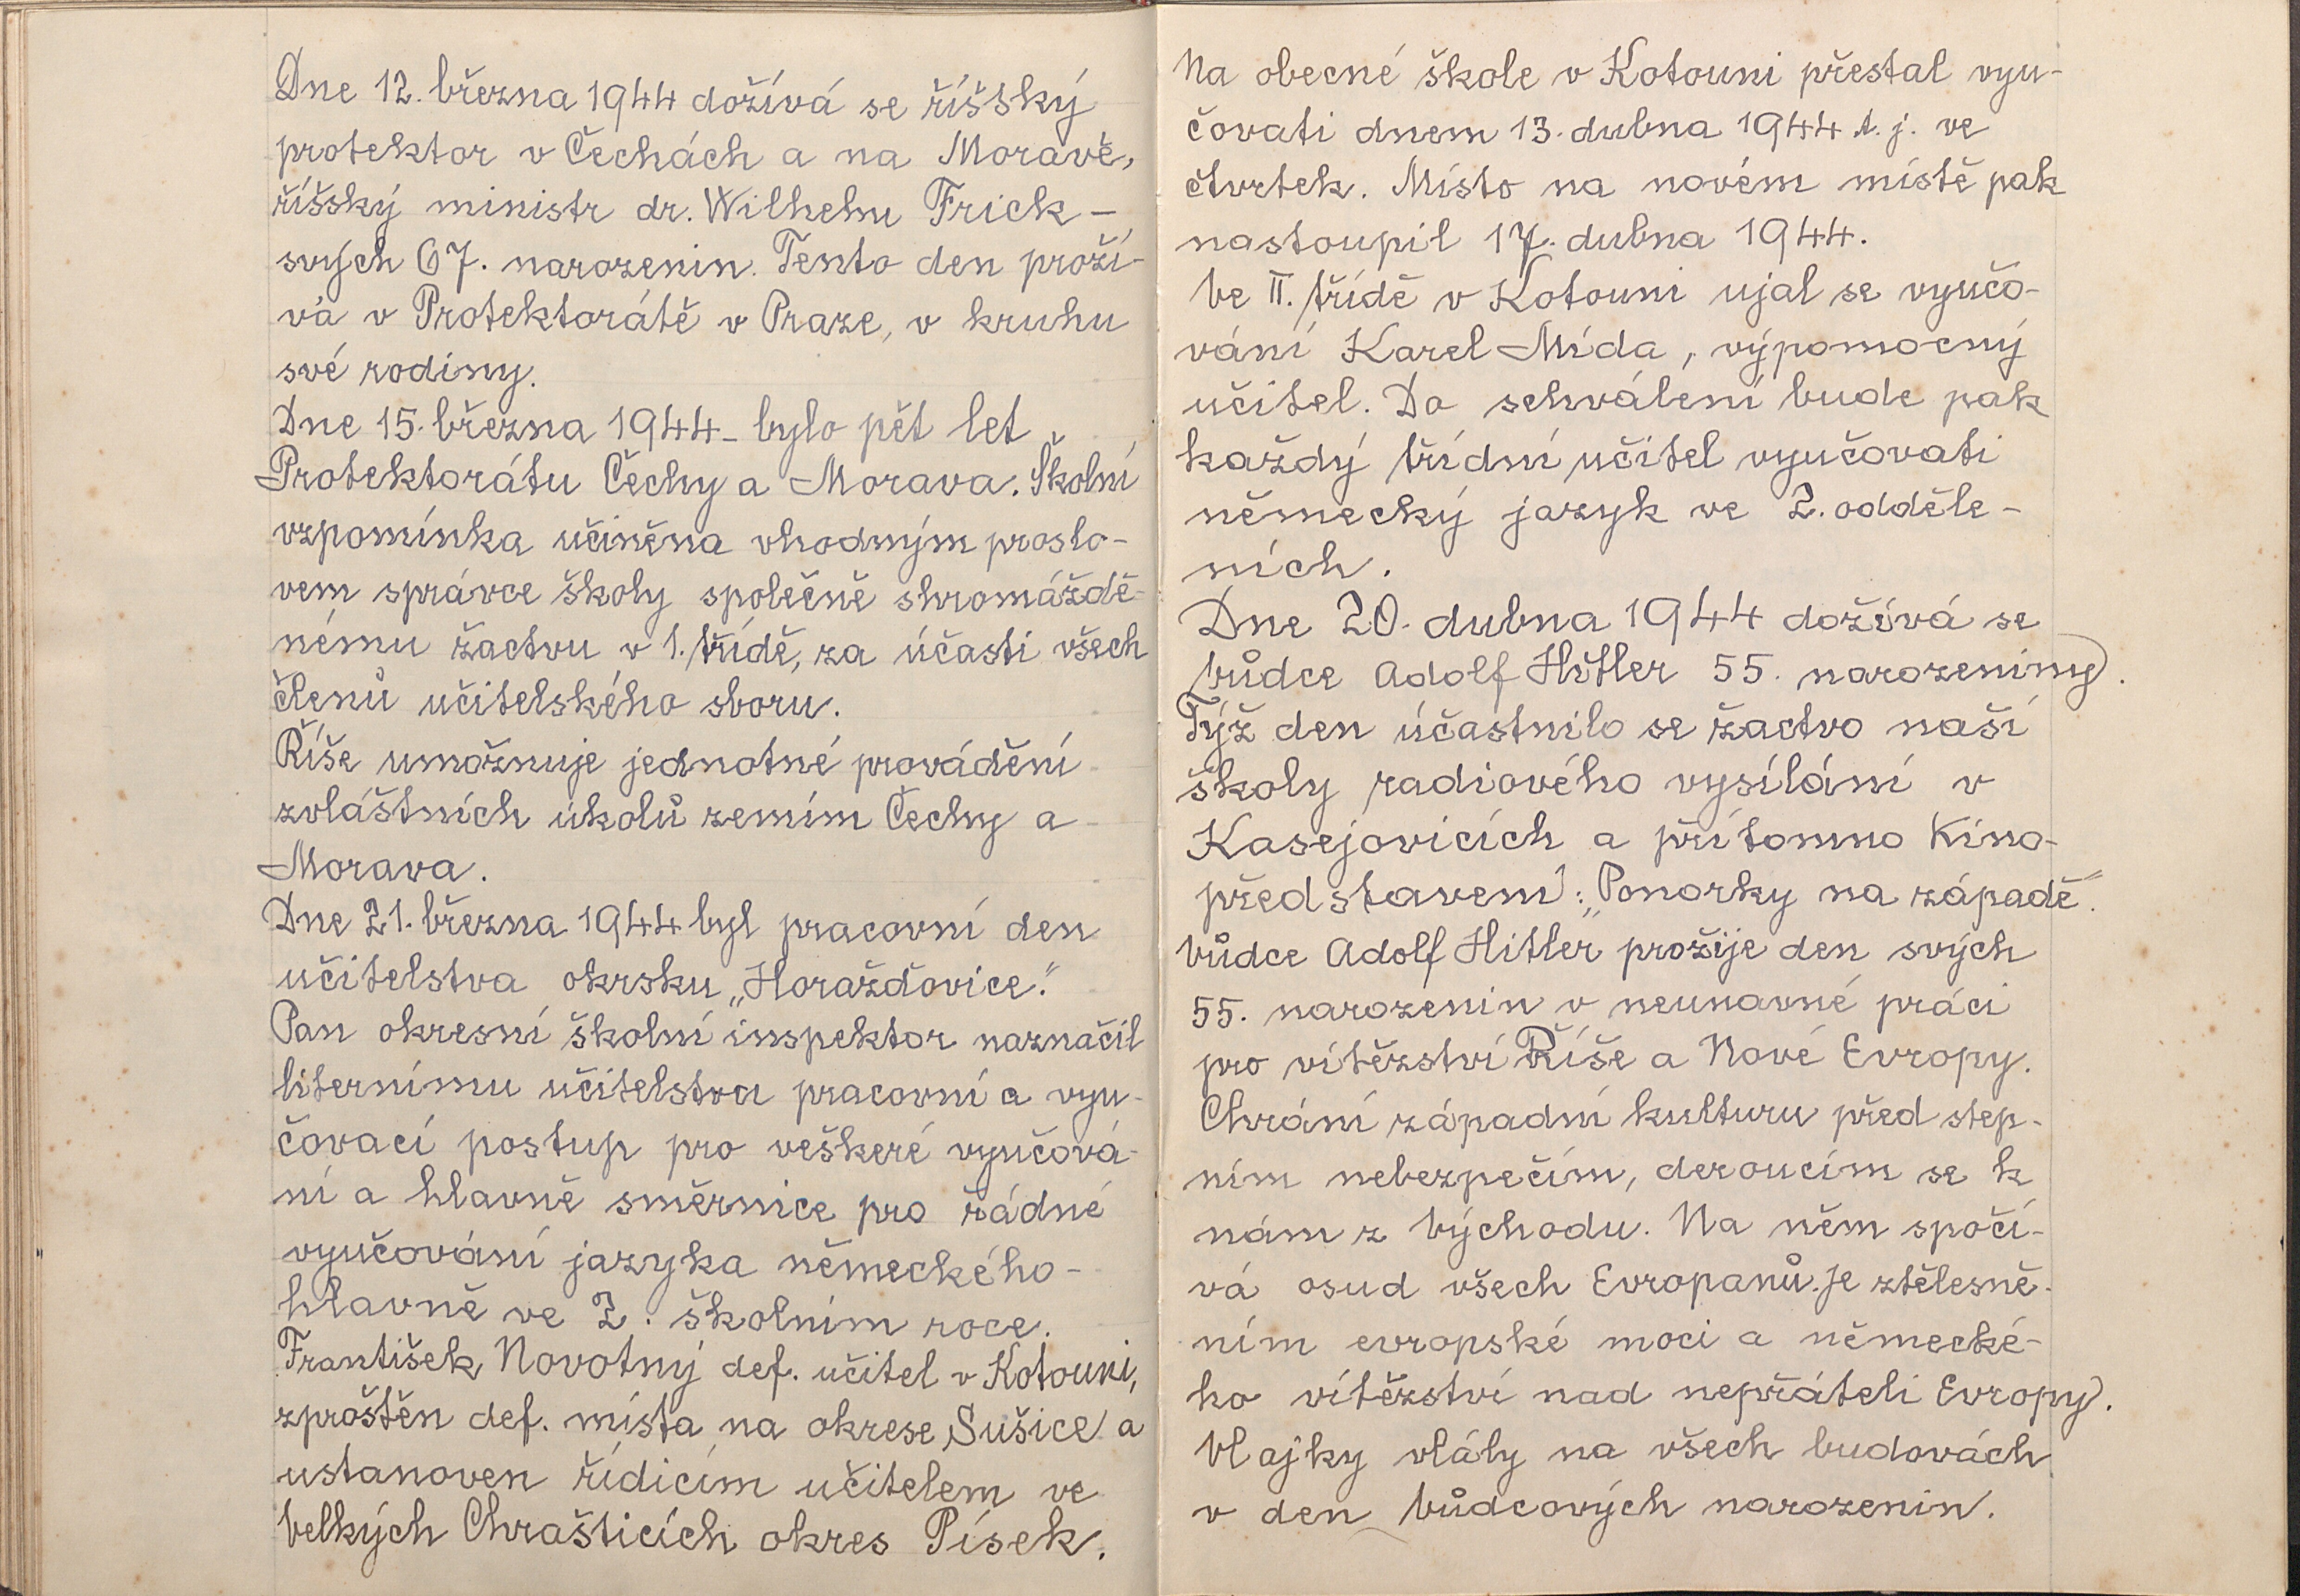 Dne 12. března 1944 dožívá se říšský
protektor v Čechách a na Moravě,
říšský ministr dr. Wilhelm Frick –
svých 67. narozenin. Tento den proží-
vá v Protektorátě v Praze, v kruhu
své rodiny.
Dne 15. března 1944 – bylo pět let
Protektorátu Čechy a Morava. Školní
vzpomínka učiněna vhodným proslo-
vem správce školy společně shromáždě-
nému žactvu v 1. třídě, za účasti všech
členů učitelského sboru.
Říše umožnuje jednotné provádění
zvláštních úkolů zemím Čechy a
Morava.
Dne 21. března 1944 byl pracovní den
učitelstva okrsku „Horažďovice."
Pan okresní školní inspektor naznačil
liternímu učitelstvu pracovní a vyu-
čovací postup pro veškeré vyučová-
ní a hlavně směrnice pro řádné
vyučování jazyka německého –
hlavně ve 2. školním roce.
František Novotný def. učitel v Kotouni,
zproštěn def. místa na okrese Sušice a
ustanoven řídicím učitelem ve
Velkých Chrašticích okres Písek.
Na obecné škole v Kotouni přestal vyu-
čovati dnem 13. dubna 1944 t. j. ve
čtvrtek. Místo na novém místě pak
nastoupil 17. dubna 1944.
Ve II. třídě v Kotouni ujal se vyučo-
vání Karel Mída, výpomocný
učitel. Do schválení bude pak
každý třídní učitel vyučovati
německý jazyk ve 2. odděle-
ních.
Dne 20. dubna 1944 dožívá se
Vůdce Adolf Hitler 55. narozeniny.
Týž den účastnilo se žactvo naší
školy radiového vysílání v
Kasejovicích a přítomno Kino-
představení: „Ponorky na západě".
Vůdce Adolf Hitler prožije den svých
55. narozenin v neunavné práci
pro vítězství Říše a Nové Evropy.
Chrání západní kulturu před step-
ním nebezpečím, deroucím se k
nám z Východu. Na něm spočí-
vá osud všech Evropanů. Je ztělesně-
ním evropské moci a německé-
ho vítězství nad nepřáteli Evropy.
Vlajky vlály na všech budovách
v den Vůdcových narozenin.